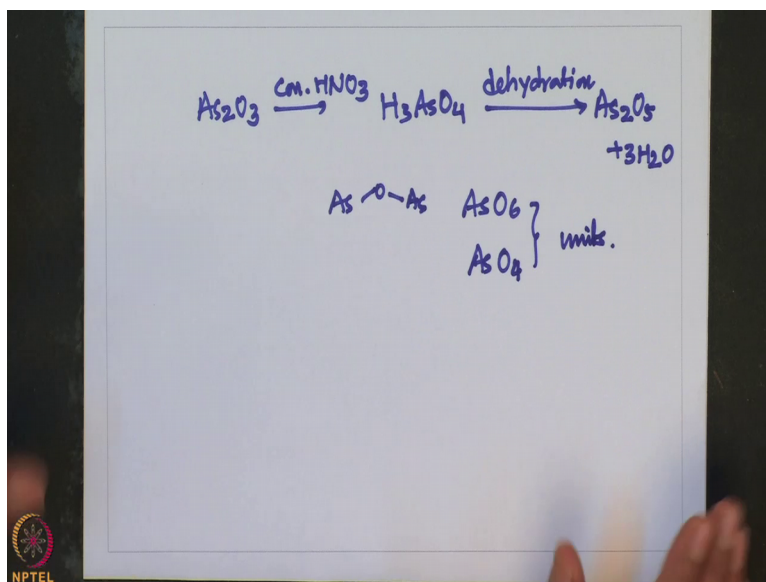 As2O3 con. HNO3 → H3AsO4 dehydration → As2O5
+3H2O
As O As AsO6
AsO4 } units.
NPTEL